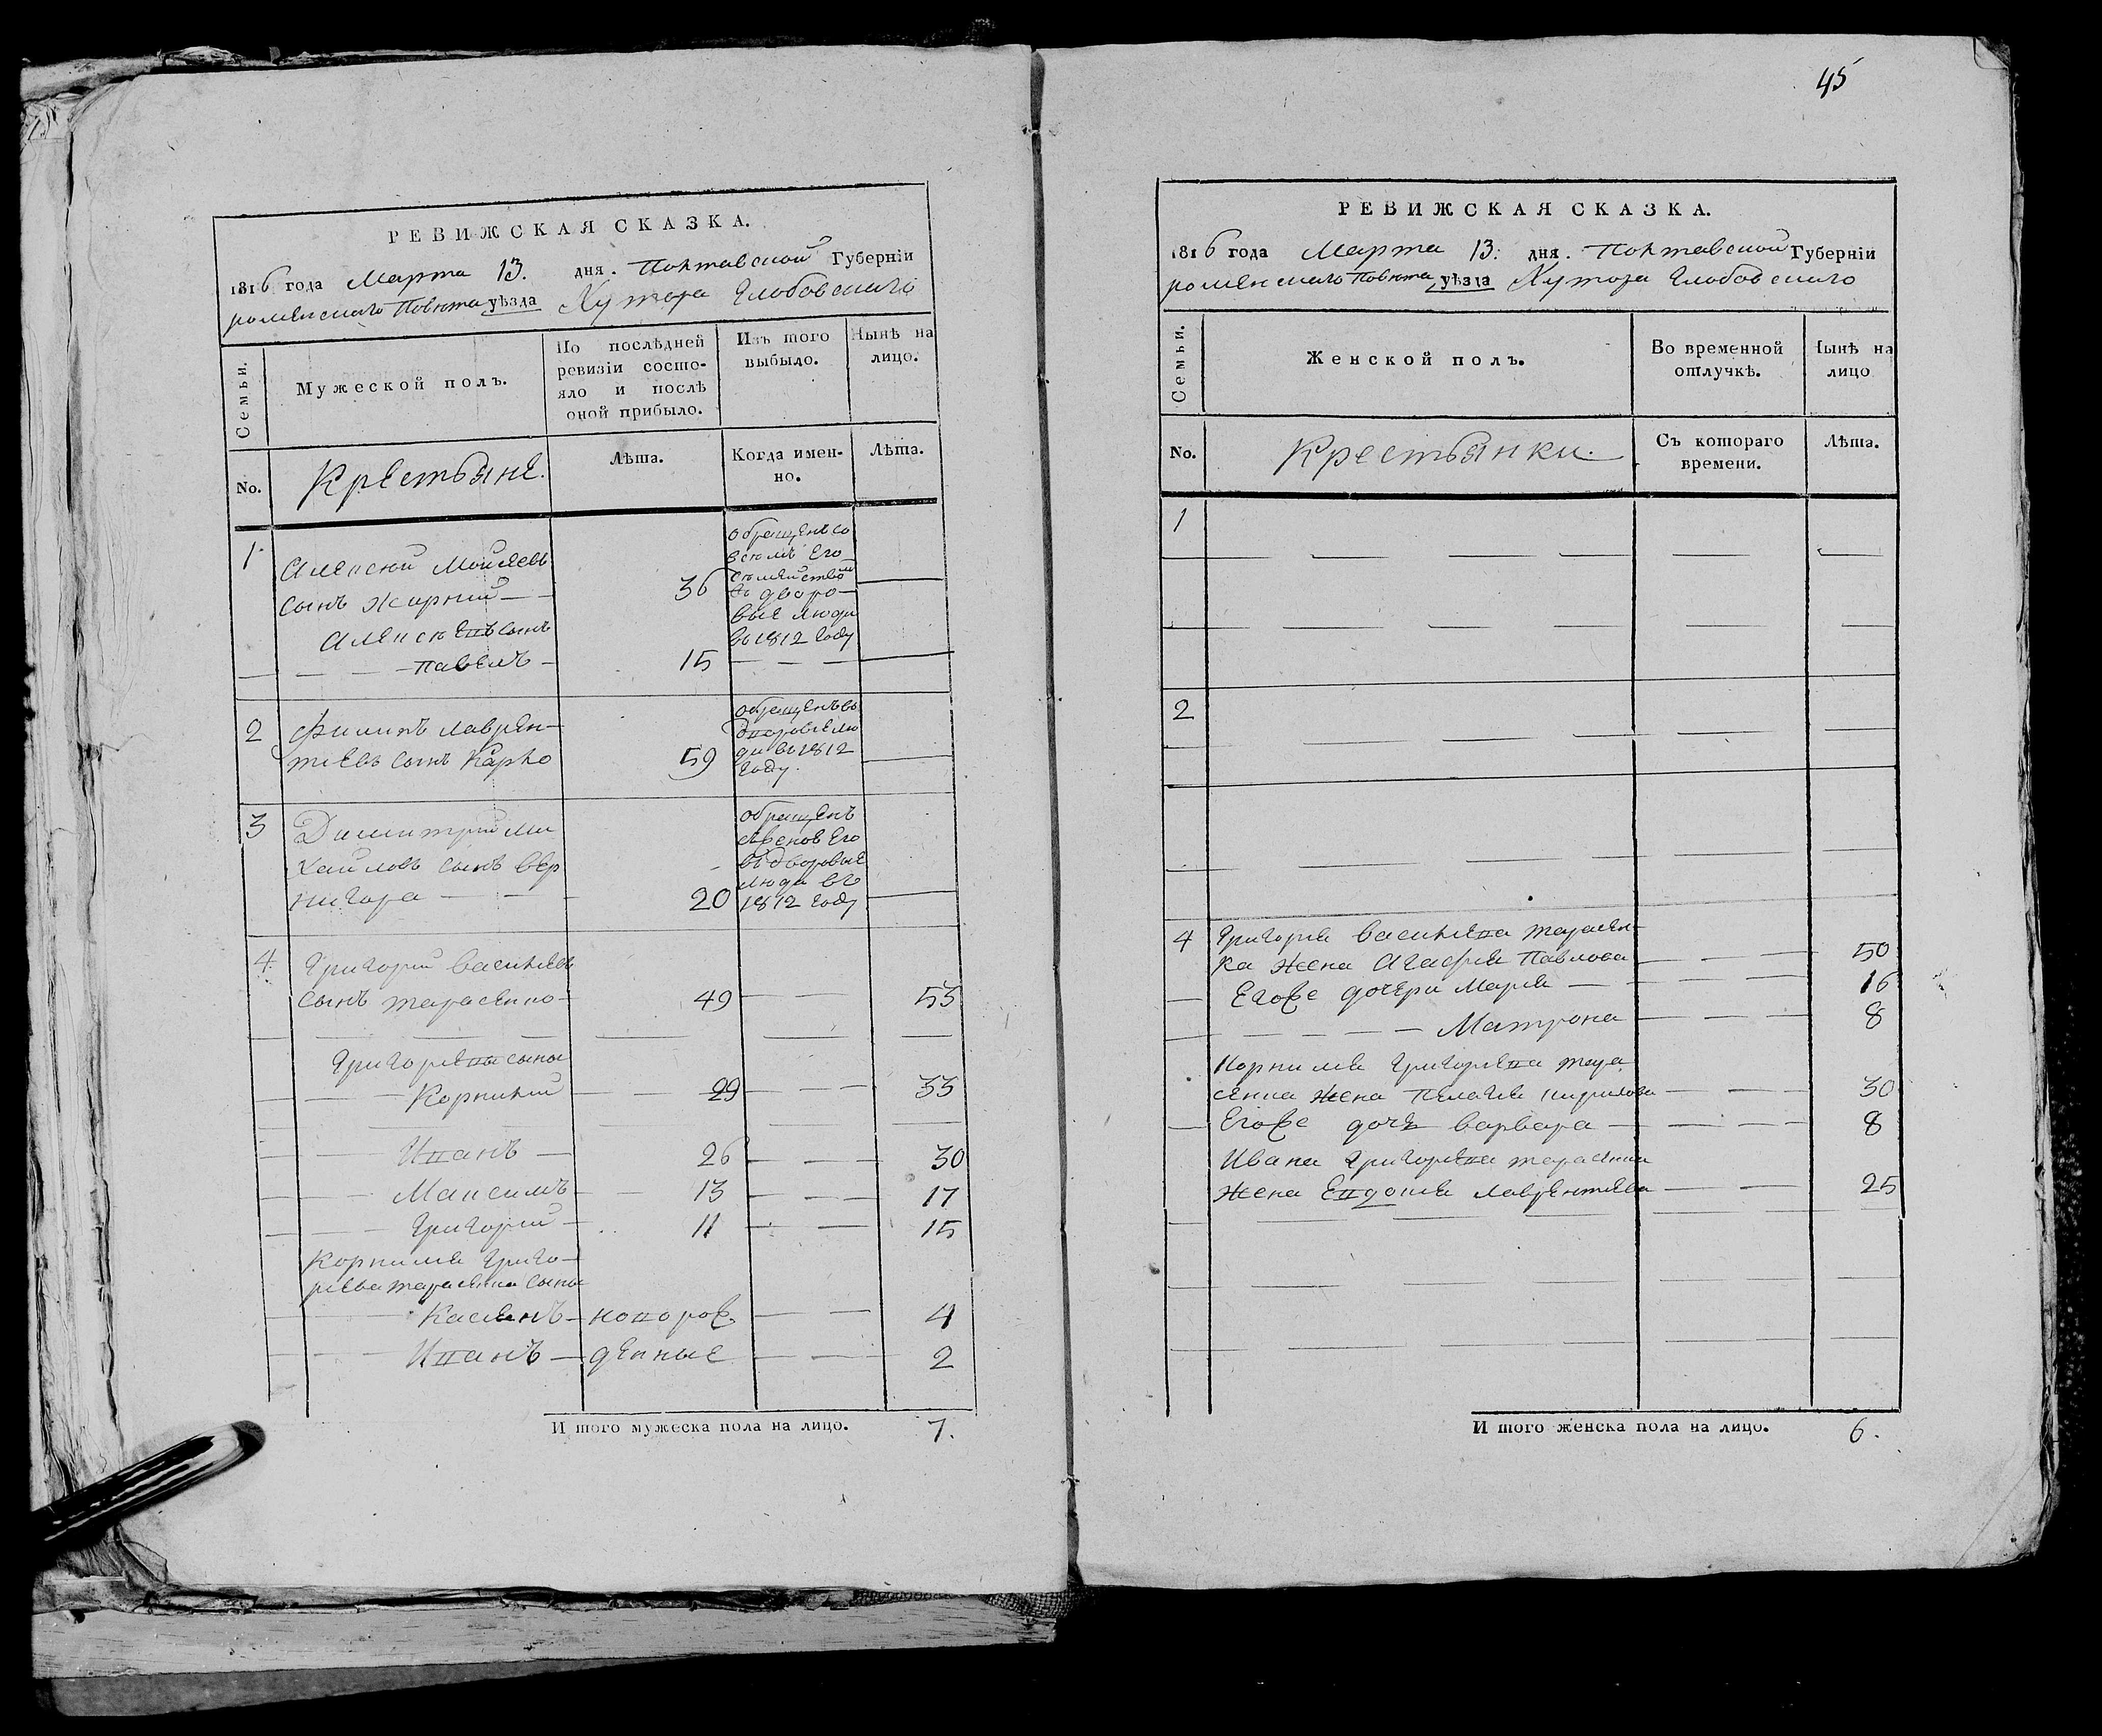 45
РЕВИЖСКАЯ СКАЗКА.
1816 года Марта 13. дня. Полтавской Губерніи
роменского Повета уѣзда Хутора Глобовского
Семьи.
Мужеской полъ.
По послѣдней
ревизіи состо-
яло и послѣ
оной прибыло.
Изъ того
выбыло.
Нынѣ на
лицо.
No.
Крестьяне.
Лѣта.
Когда имен-
но.
Лѣта.
1
Алексей Мойсеевъ
сынъ Жирный
36
обращенъ со
всемъ Его
семействомъ
въ дворо-
вые люди
въ 1812 году
Алексеевъ сынъ
Павелъ
15
2
Филипъ Лаврен-
тиевъ сынъ Карко
59
обращенъ въ
дворовые лю
ди въ 1812
году.
3
Димитрий Ми
хайловъ сынъ Вер
нигора
20
обращенъ
въ дворовые
люди въ
1812 году
4
Григорий Васильевъ
сынъ Тарасенко
49
53
Григориевы сыны
Корнилий
29
33
Иванъ
26
30
Максимъ
13
17
Григорий
11
15
Корнилия Григо-
риева Тарасенка сыны
Касиянъ
новорож
4
Иванъ
денные
2
И того мужеска пола на лицо.
7.
РЕВИЖСКАЯ СКАЗКА.
1816 года Марта 13: дня. Полтавской Губерніи
роменского Повета уѣзда Хутора Глобовского
Семьи.
Женской полъ.
Во временной
отлучкѣ.
Нынѣ на
лицо
No.
Крестьянки.
Съ котораго
времени.
Лѣта.
1
2
4
Григория Василиева Тарасен-
ка жена Агафия Павлова
50
Егоже дочери Мария
16
Матрона
8
Корнилия Григориева Тара
сенка жена Пелагия Кирилова
30
Егоже дочь Варвара
8
Ивана Григориева Тарасенка
жена Евдокия Лаврентиева
25
И того женска пола на лицо.
6.